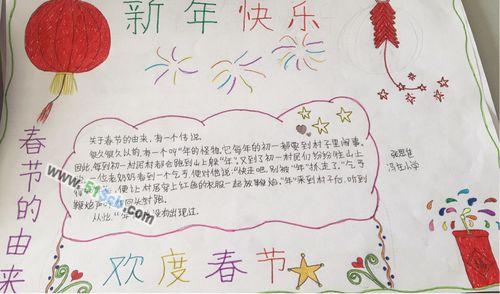 新年快乐
春节的由来
关于春节的由来,有一个传说。
很久很久以前,有一个叫"年"的怪物。它每年的初一都要到村子里闹事。
因此,每到初一村民村都会跑到山上躲"年",又到了初一村民们纷纷往山上
一位老奶奶看到一个乞丐,便对他说:"快走吧,别被"年"抓走了。"乞丐
便让村民穿上红色的衣服一起放鞭炮。"年"来到村子后,听到
鞭炮声 回头就跑。
从此,"年" 没有出现过。
冯庄小学
www.515cb.com
欢度春节